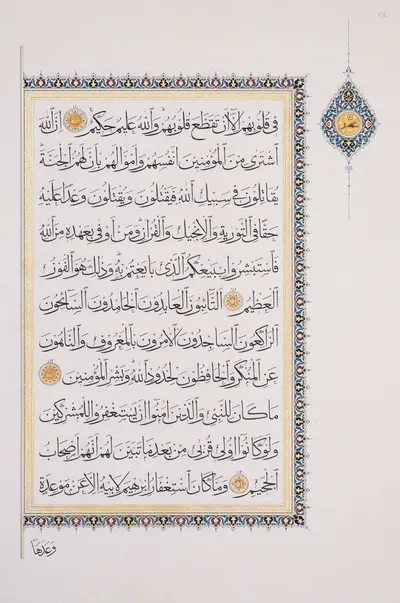 فِى قُلُوبِهِمْ إِلَّا أَن تَقَطَّعَ قُلُوبُهُمْ وَاللهُ عَلِيمٌ حَكِيمٌ إِنَّ اللهَ
اشْتَرَى مِنَ الْمُؤْمِنِينَ أَنْفُسَهُمْ وَأَمْوَالَهُمْ بِأَنَّ لَهُمُ الْجَنَّةَ
يُقَاتِلُونَ فِى سَبِيلِ اللهِ فَيَقْتُلُونَ وَيُقْتَلُونَ وَعْدًا عَلَيْهِ
حَقًّا فِى التَّوْرٰيةِ وَالْإِنْجِيلِ وَالْقُرْآنِ وَمَنْ أَوْفَى بِعَهْدِهِ مِنَ اللهِ
فَاسْتَبْشِرُوا بِبَيْعِكُمُ الَّذِى بَايَعْتُمْ بِهِ وَذٰلِكَ هُوَ الْفَوْزُ
الْعَظِيمُ التَّائِبُونَ الْعَابِدُونَ الْحَامِدُونَ السَّائِحُونَ
الرَّاكِعُونَ السَّاجِدُونَ الْآمِرُونَ بِالْمَعْرُوفِ وَالنَّاهُونَ
عَنِ الْمُنْكَرِ وَالْحَافِظُونَ لِحُدُودِ اللهِ وَبَشِّرِ الْمُؤْمِنِينَ
مَا كَانَ لِلنَّبِىِّ وَالَّذِينَ آمَنُوا أَنْ يَسْتَغْفِرُوا لِلْمُشْرِكِينَ
وَلَوْ كَانُوا أُولِى قُرْبَى مِنْ بَعْدِ مَا تَبَيَّنَ لَهُمْ أَنَّهُمْ أَصْحَابُ
الْجَحِيمِ وَمَا كَانَ اسْتِغْفَارُ إِبْرٰهِيمَ لِأَبِيهِ إِلَّا عَنْ مَوْعِدَةٍ
وَعَدَهَا